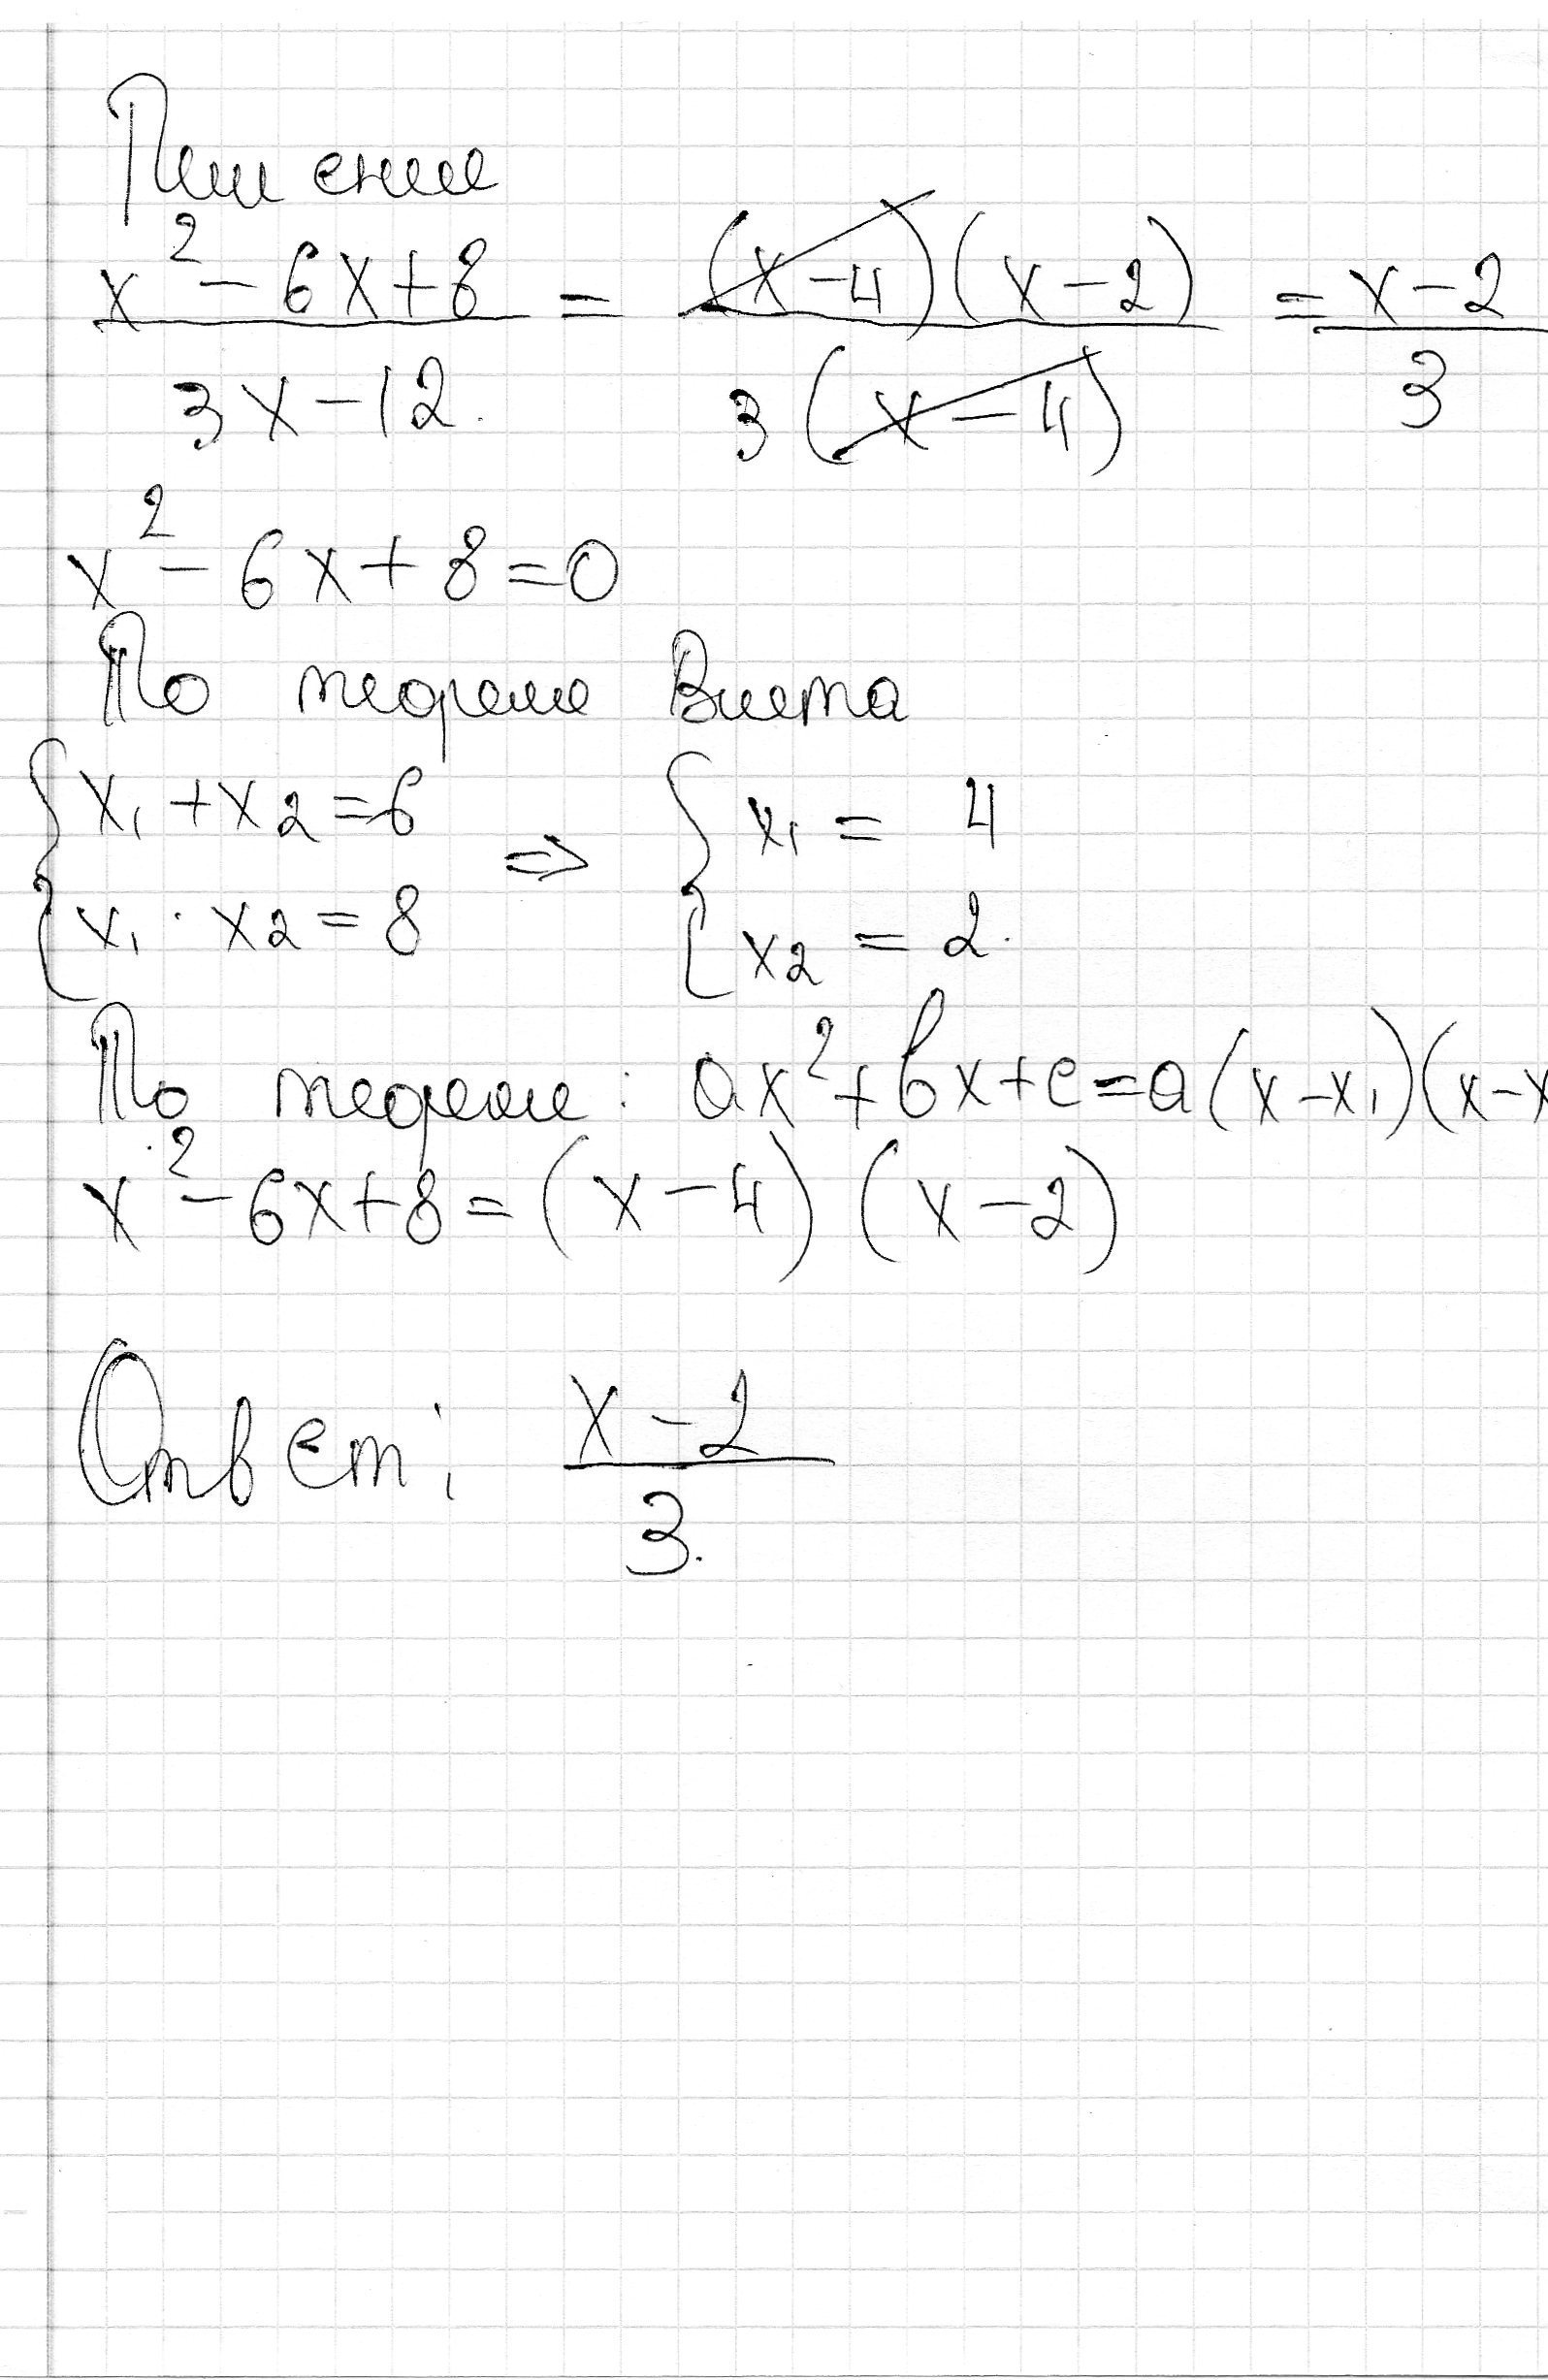 Решение
x² - 6x + 8 / 3x - 12. = (x - 4)(x - 2) / 3(x - 4) = x - 2 / 3
x² - 6x + 8 = 0
По теореме Виета
{ x₁ + x₂ = 6 ⇒ { x₁ = 4
{ x₁ · x₂ = 8 { x₂ = 2.
По теореме: ax² + bx + c = a(x - x₁)(x - x
x² - 6x + 8 = (x - 4)(x - 2)
Ответ: x - 2 / 3.